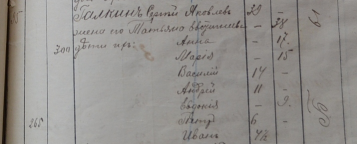 Галкинъ Сергѣй Яковлевъ 39 –
жена его Татьяна – 38
300 дѣти ихъ: Анна – 17
Марія – 15
Василій 14 –
Андрей 11 –
Евдокія – 9
265 Петръ 6 –
Иванъ